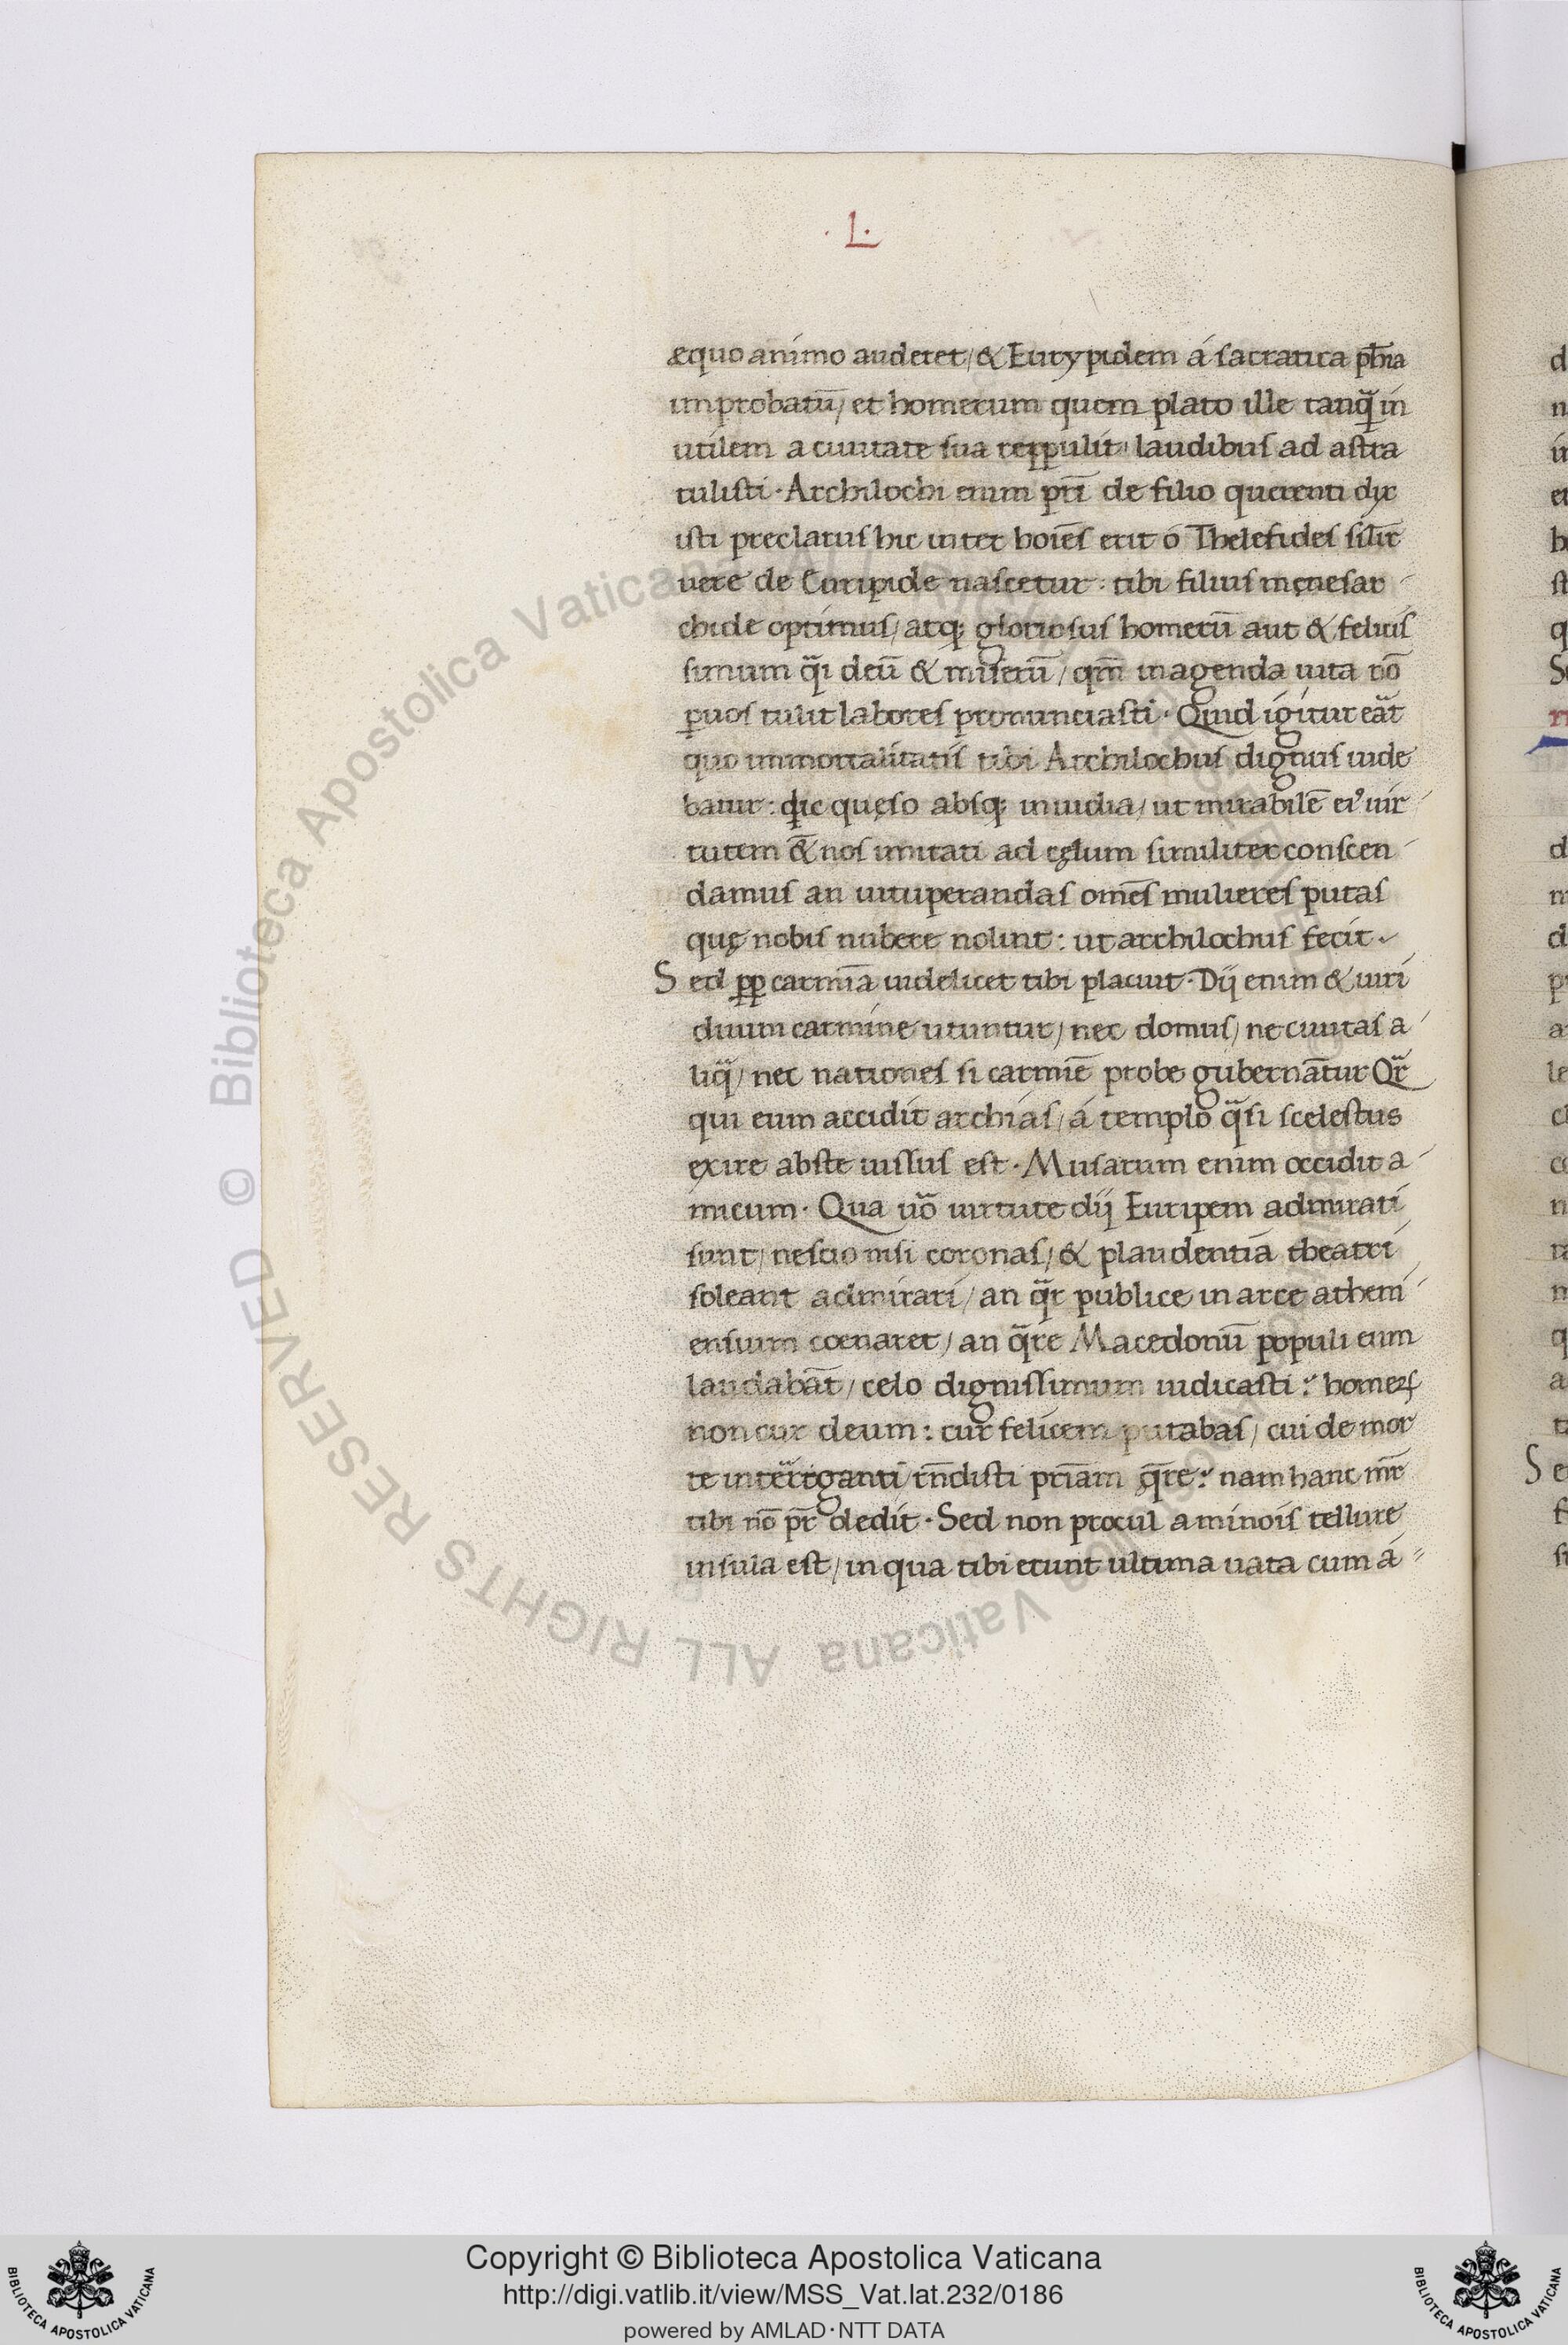 ·L·
æquo animo auderet/ & Eurypidem á sacratica phĩa
improbatũ/ et homerum quem plato ille tanq̃ in
utilem a ciuitate sua reppulit laudibus ad astra
tulisti · Archilochi enim pr̃i de filio querenti dix
isti preclarus hic inter hoiẽs erit ó Thelesides silir̃
uere de Euripide nascetur : tibi filius męnesar
chide optimus/ atq; gloriosus homerũ aut & felicis
simum q̃i deũ & miserũ/ qm̃ in agenda uita nõ
puos tulit labores pronunciasti · Quid igitur eãt
quo immortalitatis tibi Archilochus dignus uide
batur : dic quęso absq; inuidia/ ut mirabilẽ ei' uir
tutem & nos imitati ad cęlum similiter conscen
damus an uituperandas omẽs mulieres putas
quę nobis nubere nolint : ut archilochus fecit
Sed pp carmĩa uidelicet tibi placuit · Dij enim & uiri
diuum carmine utuntur/ nec domus/ ne ciuitas a
liq̃/ nec nationes si carmiẽ probe gubernãtur Qr̃
qui eum accidit archias/ á templo q̃si scelestus
exire abste uissus est · Musarum enim occidit a
micum · Qua uõ uirtute dij Euripem admirati
sunt/ nescio nisi coronas/ & plaudentiã theatri
soleant admirari/ an q̃r publice in arce atheni
ensium coenaret/ an q̃re Macedonũ populi eum
laudabãt/ celo dignissimum iudicasti : homerũ
non cur deum : cur felicem putabas/ cui de mor
te interroganti rñdisti priãm q̃re : nam hanc mr̃
tibi nõ pr̃ dedit · Sed non procul a minois tellure
insula est/ in qua tibi erunt ultima uata cum á
Copyright © Biblioteca Apostolica Vaticana
http://digi.vatlib.it/view/MSS_Vat.lat.232/0186
powered by AMLAD·NTT DATA